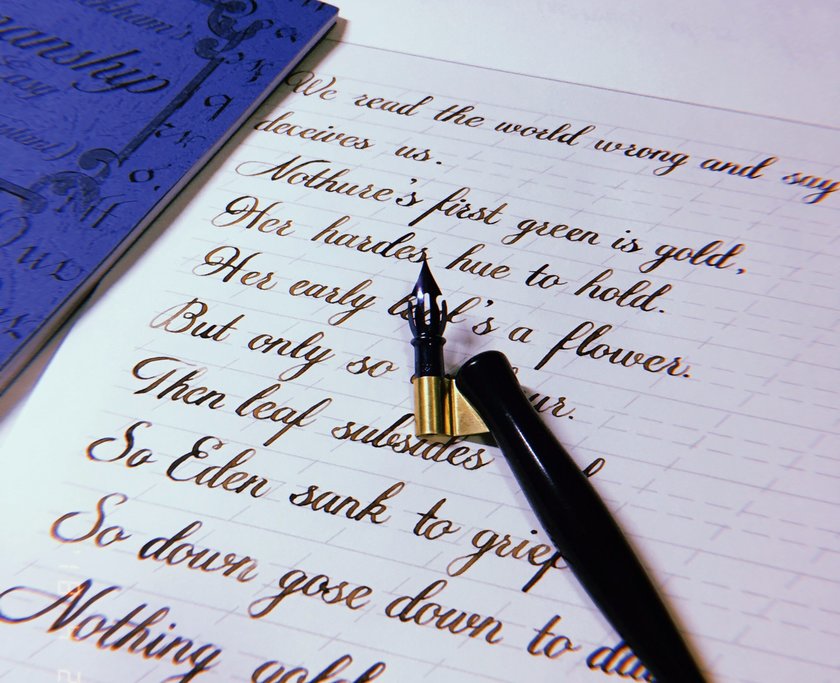 nmanship
We read the world wrong and say
deceives us.
Nothure's first green is gold,
Her hardes hue to hold.
Her early 's a flower.
But only so
Then leaf subsides
So Eden sunk to grief
So down gose down to
Nothing gold